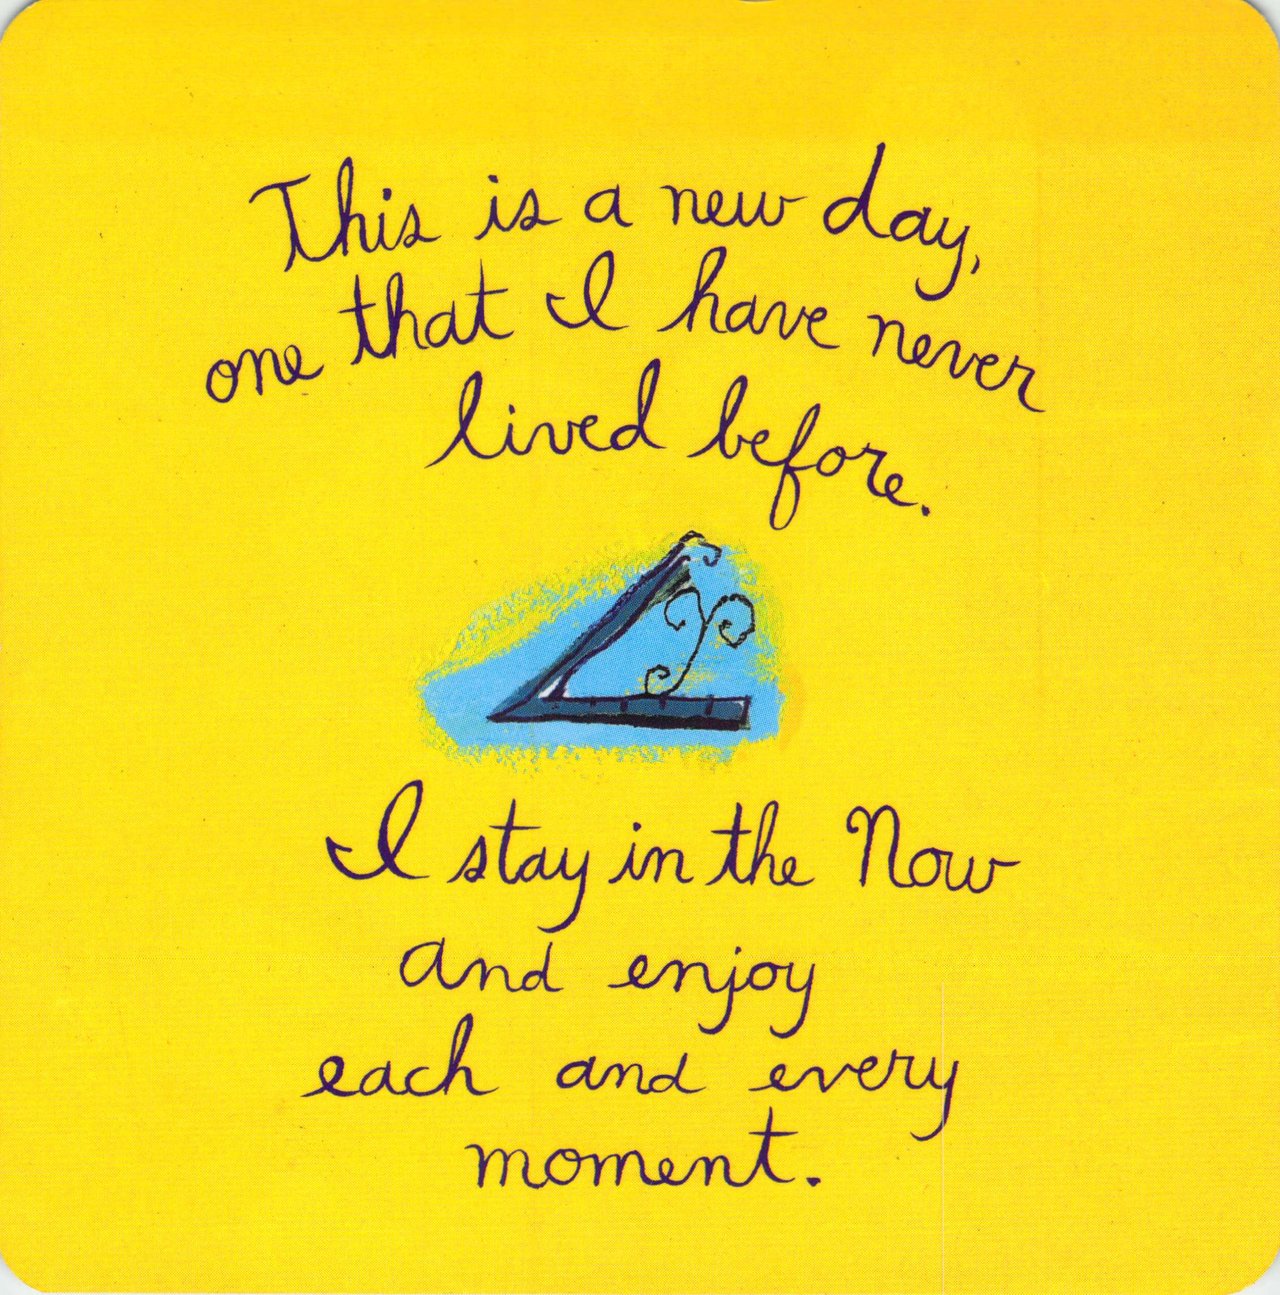 This is a new day,
one that I have never
lived before.
I stay in the Now
and enjoy
each and every
moment.